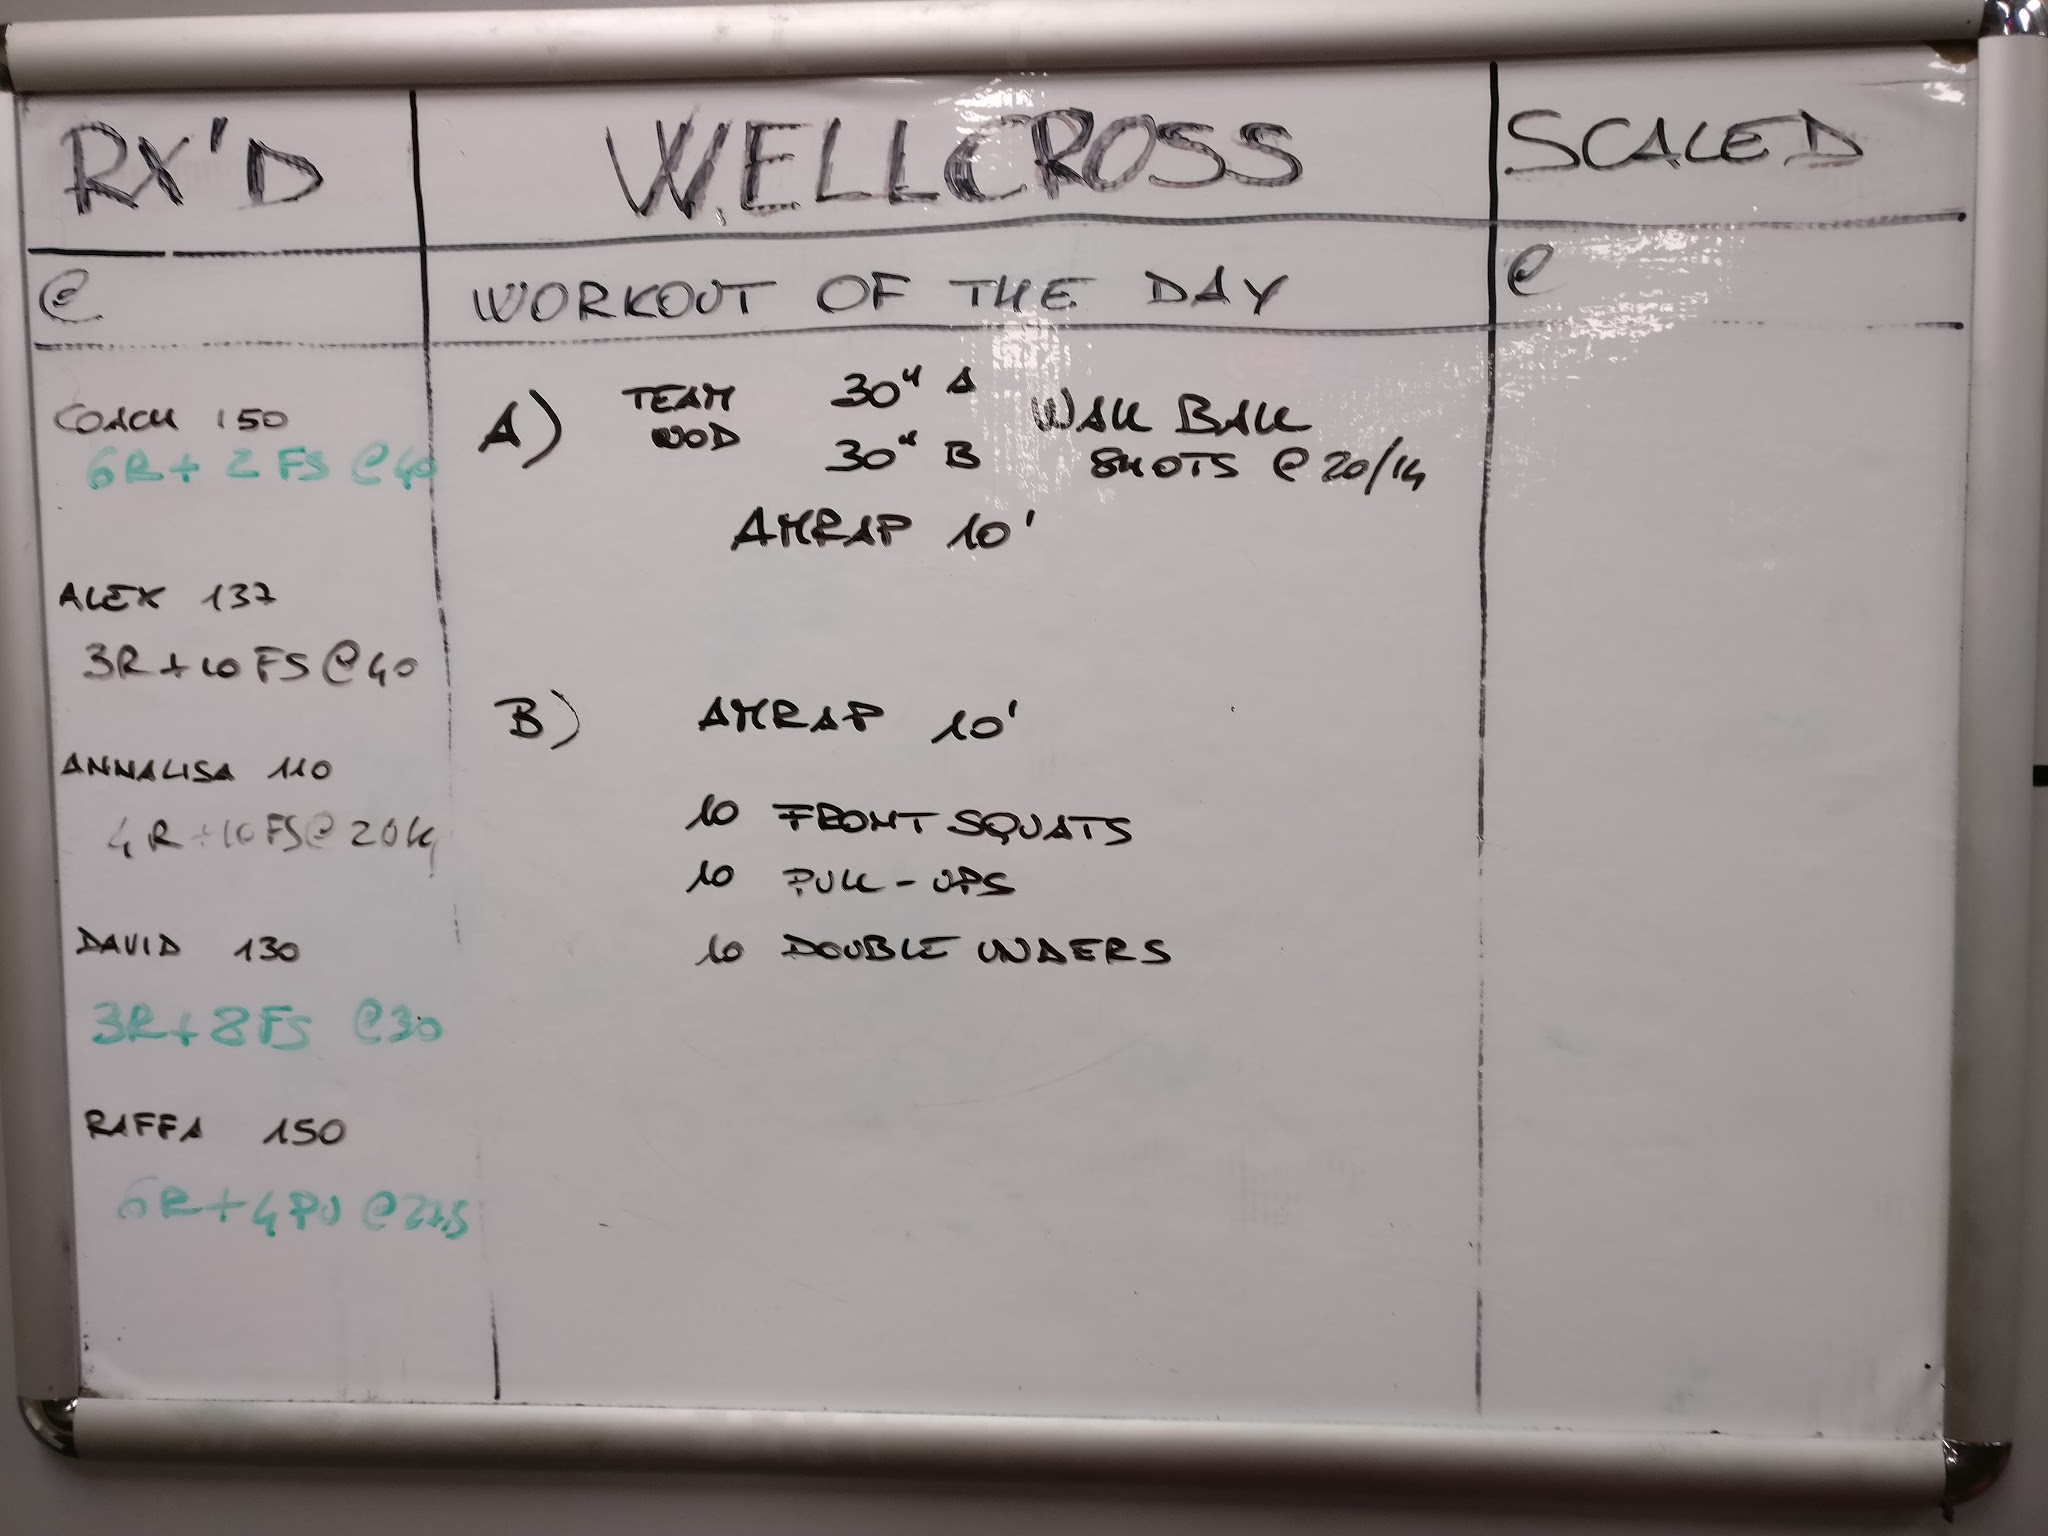 RX'D
@
COACH 150
6R + 2 FS @ 40
ALEX 137
3R + 10 FS @ 40
ANNALISA 110
4R + 10 FS @ 20K
DAVID 130
3R + 8 FS @30
RAFFA 150
4 PU
WELLCROSS
WORKOUT OF THE DAY
A) TEAM WOD 30" A WALL BALL
30" B SHOTS @ 20/14
AMRAP 10'
B) AMRAP 10'
10 FRONT SQUATS
10 PULL-UPS
10 DOUBLE UNDERS
SCALED
@